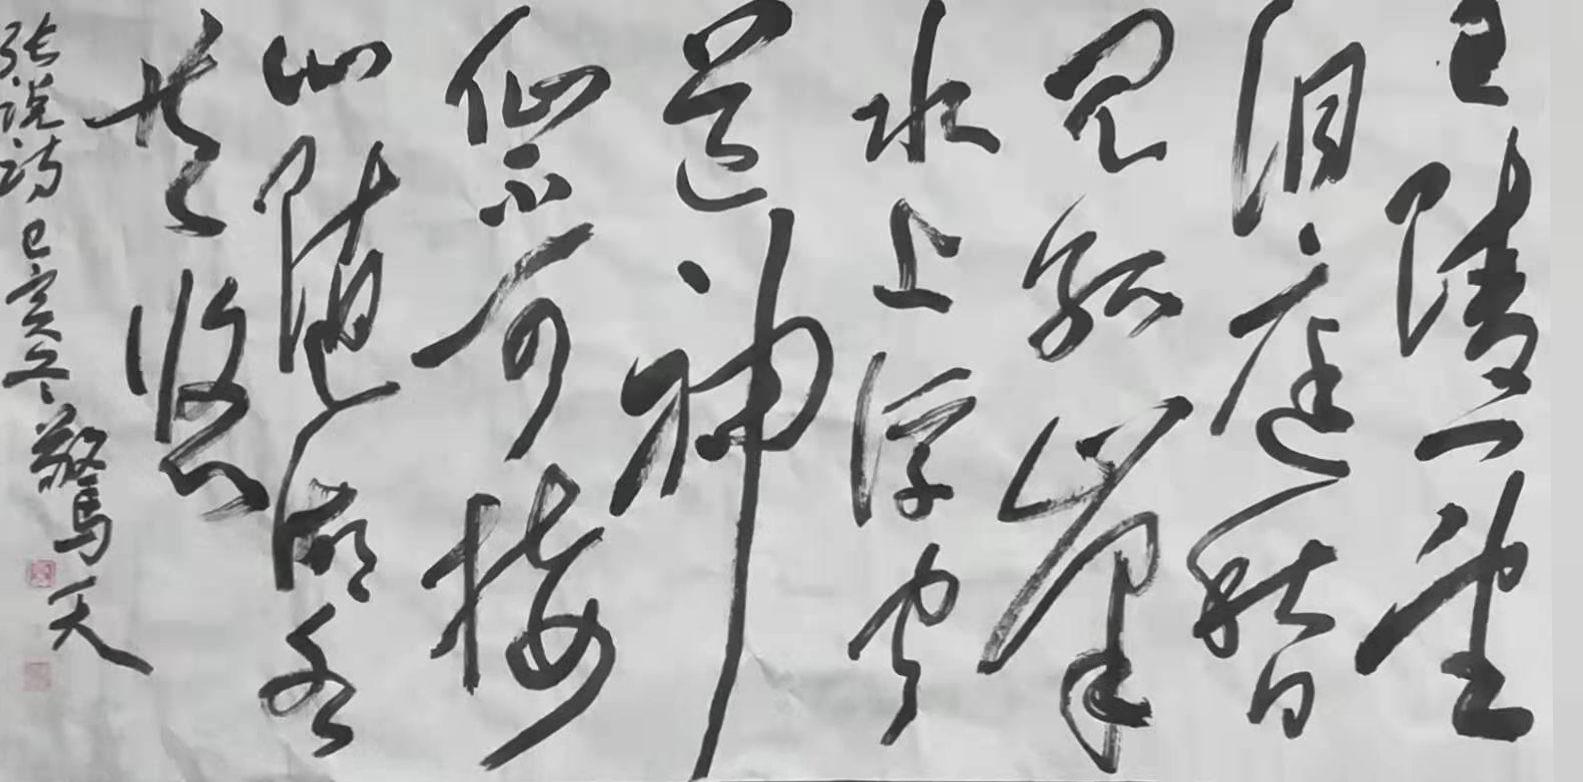 巴陵一望
洞庭秋日
见孤峰
水上浮闻
道神
仙不可接
心随湖水
共悠悠
张说诗己亥冬驚天